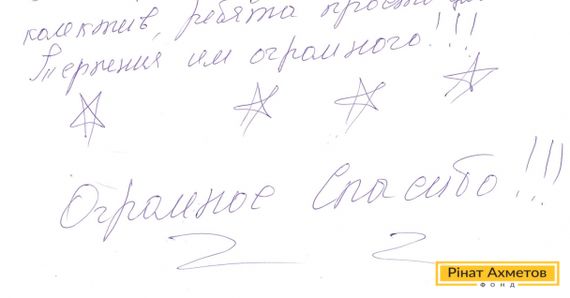 колектив, ребята просто
Терпения им огромного!!!
Огромное Спасибо!!!
Рінат Ахметов
ФОНД